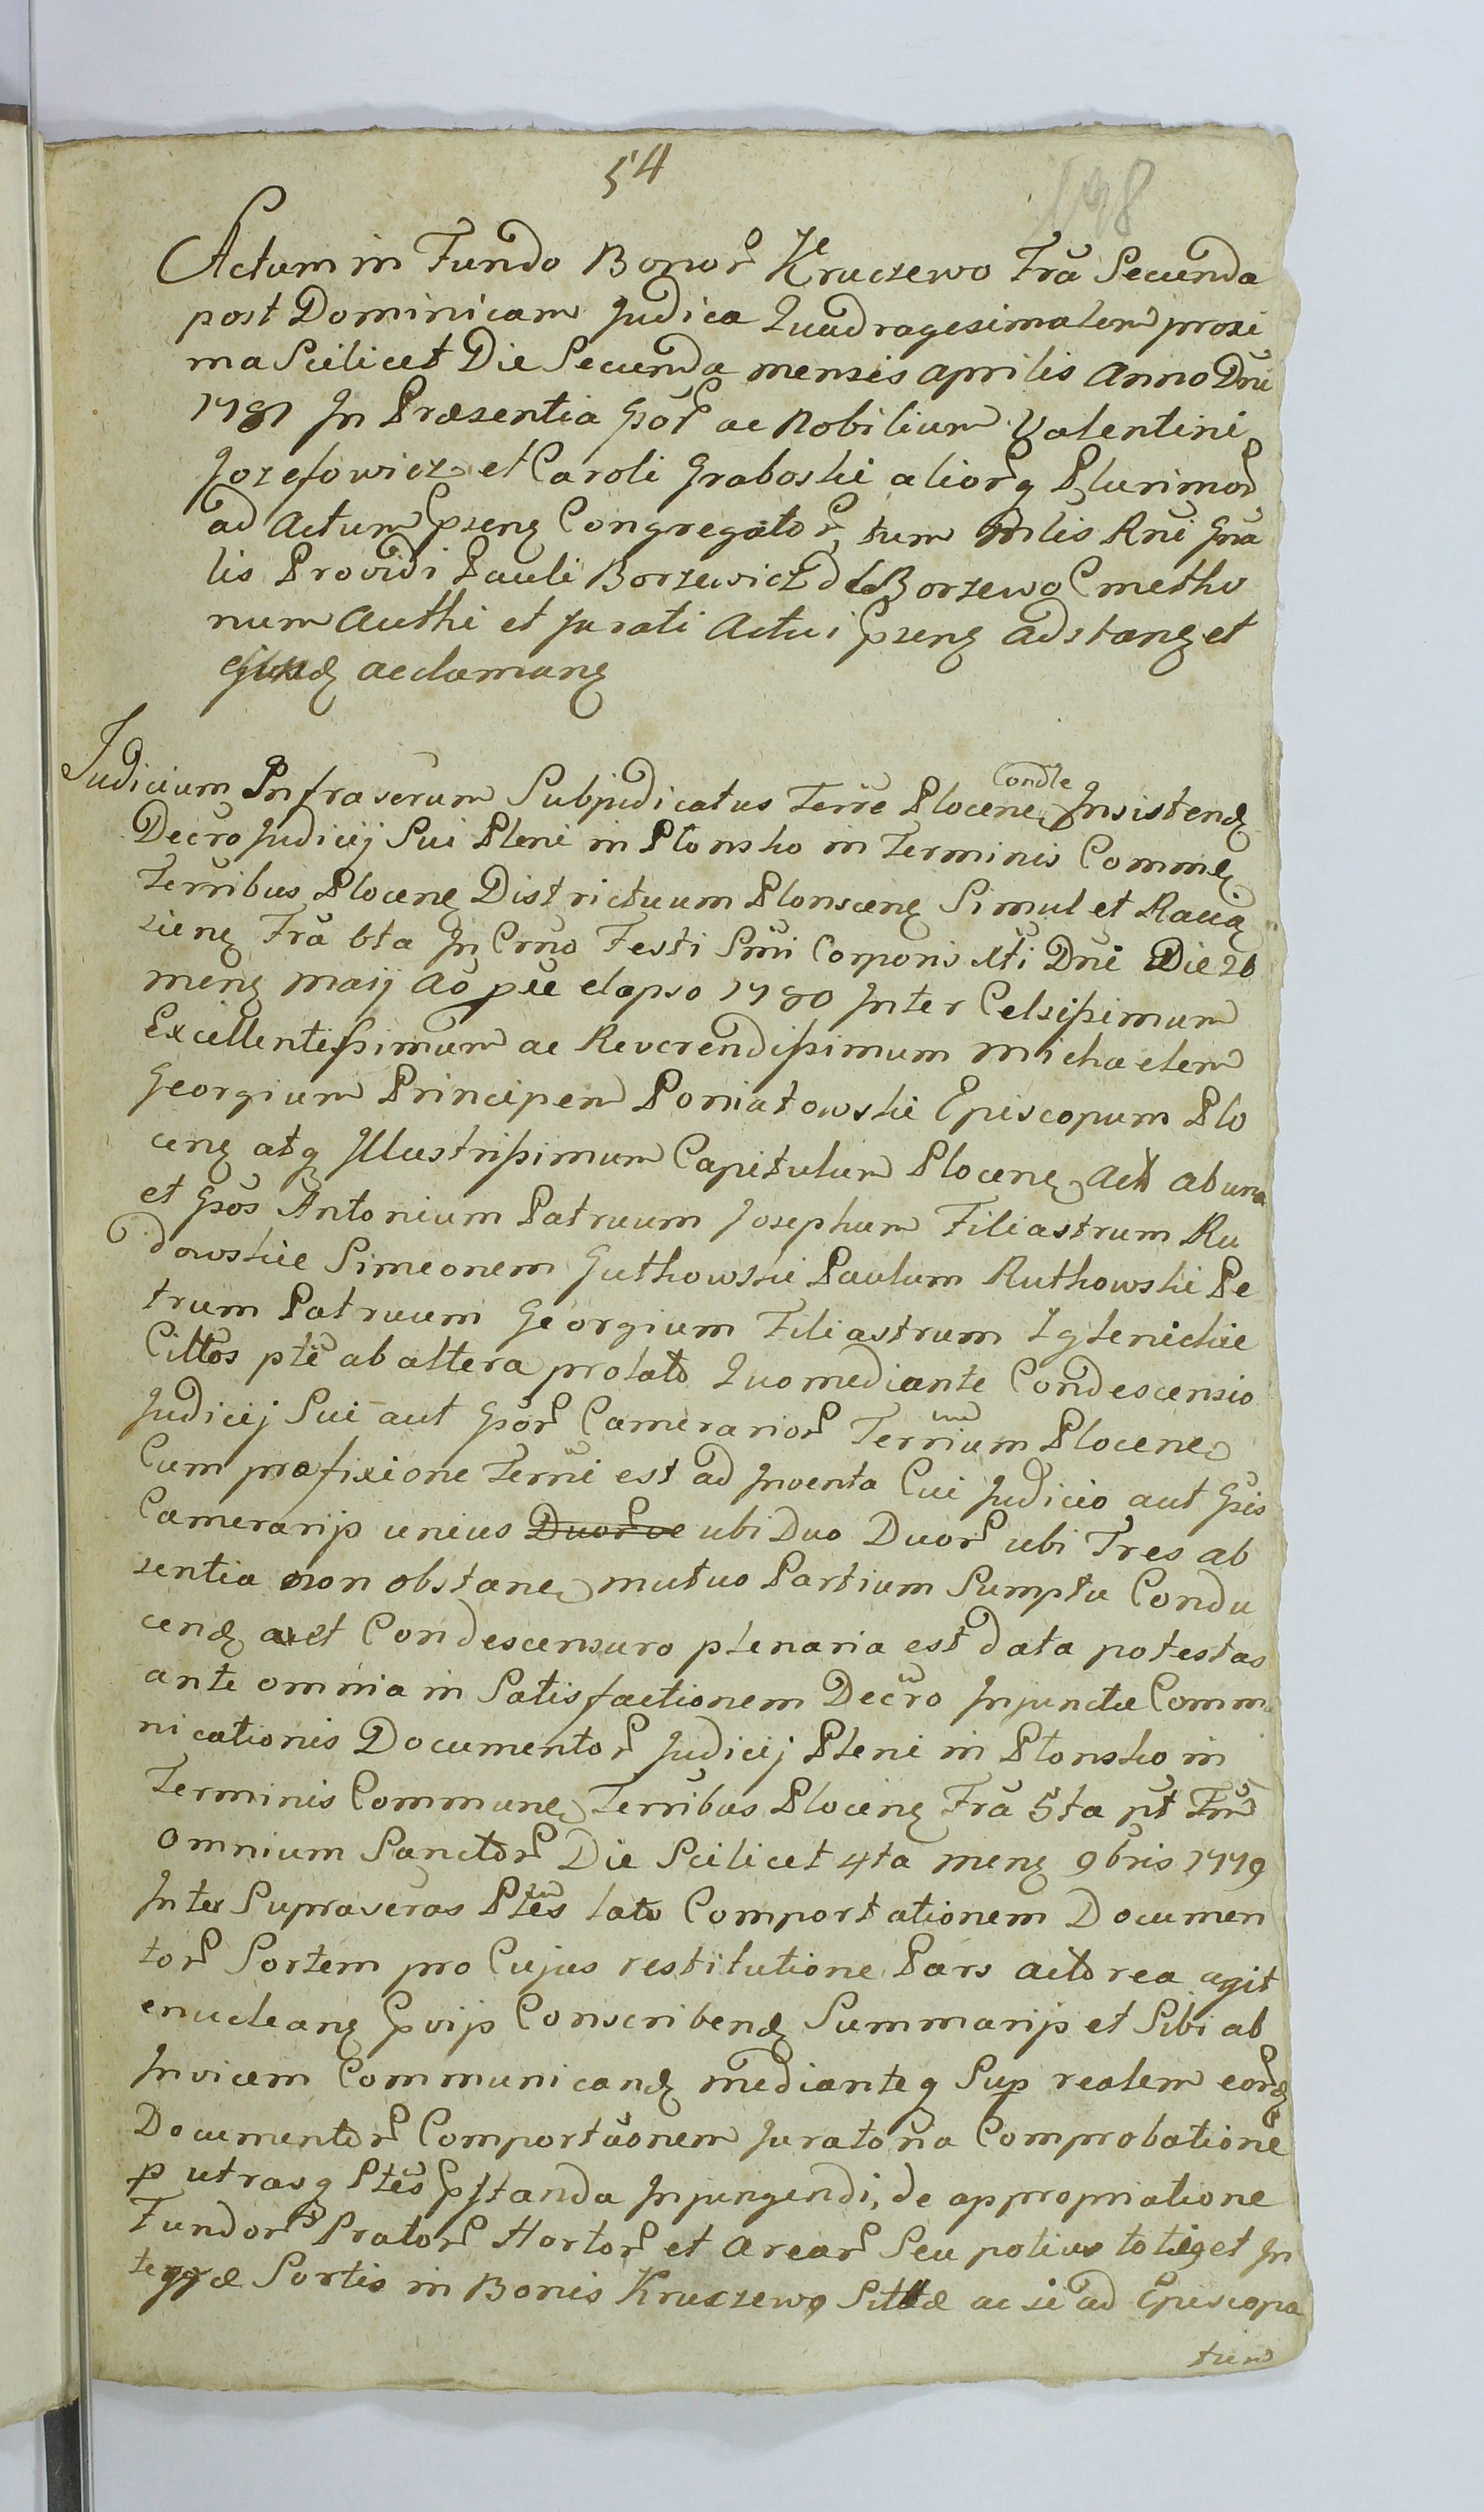 54
198
Actum in Fundo Bonor Kruczewo Fra Secunda
post Dominicam Judica Quadragesimalem proxi
ma Scilicet Die Secunda mensis aprilis Anno Dni
1781 In Præsentia Gör ac Nobilium Valentini
Jozefowicz et Caroli Graboski aliorq Plurimor
ad Actum pzenę Congregator, tum Mlis Rni Gńa
lis Providi Pauli Borzewicz de Borzewo Cmetho
num Authi et Jurati Actui pzenę adstanę et
aclamanę
Judicium Infrascrum Subjudicatus Terre Plocene Condle Insistend
Decro Judicij Sui Pleni in Plonsko in Terminis Commę
Terribus Plocenę Districtuum Plonscenę Simul et Raciąz
zienę Fra 6ta In Crno Festi Smi Corporis Xti Dni Die 26
menę maij Ao pte elapso 1780 Inter Celsissimum
Excellentissimum ac Reverendissimum Michaelem
Georgium Principem Poniatowski Episcopum Plo
cenę atq Illustrissimum Capitulum Plocenę Act ab una
et Gös Antonium Patruum Josephum Filiastrum Ru
dowskie Simeonem Guthowski Paulum Ruthowski Pe
trum Patruum Georgium Filiastrum Iglenickie
Cittos pte ab altera prolato Quo mediante Condescensio
Judicij Sui aut Gör Camerarior Terrium Plocenę
Cum præfixione Terni est ad Inventa Cui Judicio aut Gis
Camerarijs unius Duorve ubi Duo Duor ubi Tres ab
sentia non obstanę mutuo Partium Sumptu Condu
cend aut Condescensuro plenaria est data potestas
ante omnia in Satisfactionem Decro Injunctæ Commu
nicationis Documentor Judicij Pleni in Plonsko in
Terminis Communę Terribus Plocenę Fra 5ta pt Fm
Omnium Sanctor Die Scilicet 4ta menę 9bris 1779
Inter Suprascras Ptes lato Comportationem Documen
tor Sortem pro Cujus restitutione Pars actorea agit
enucleanę pvijs Conscribend Summarijs et Sibi ab
Invicem Communicand medianteq Sup realem eord
Documentor Comportaonem Juratoria Comprobatione
p utrasq Ptes pstanda Injungendi, de appropriatione
Fundor Prator Hortor et Arear Seu potius totiq et In
tegræ Sortis in Bonis Kruczewo Sittæ ac si ad Episcopa
tum